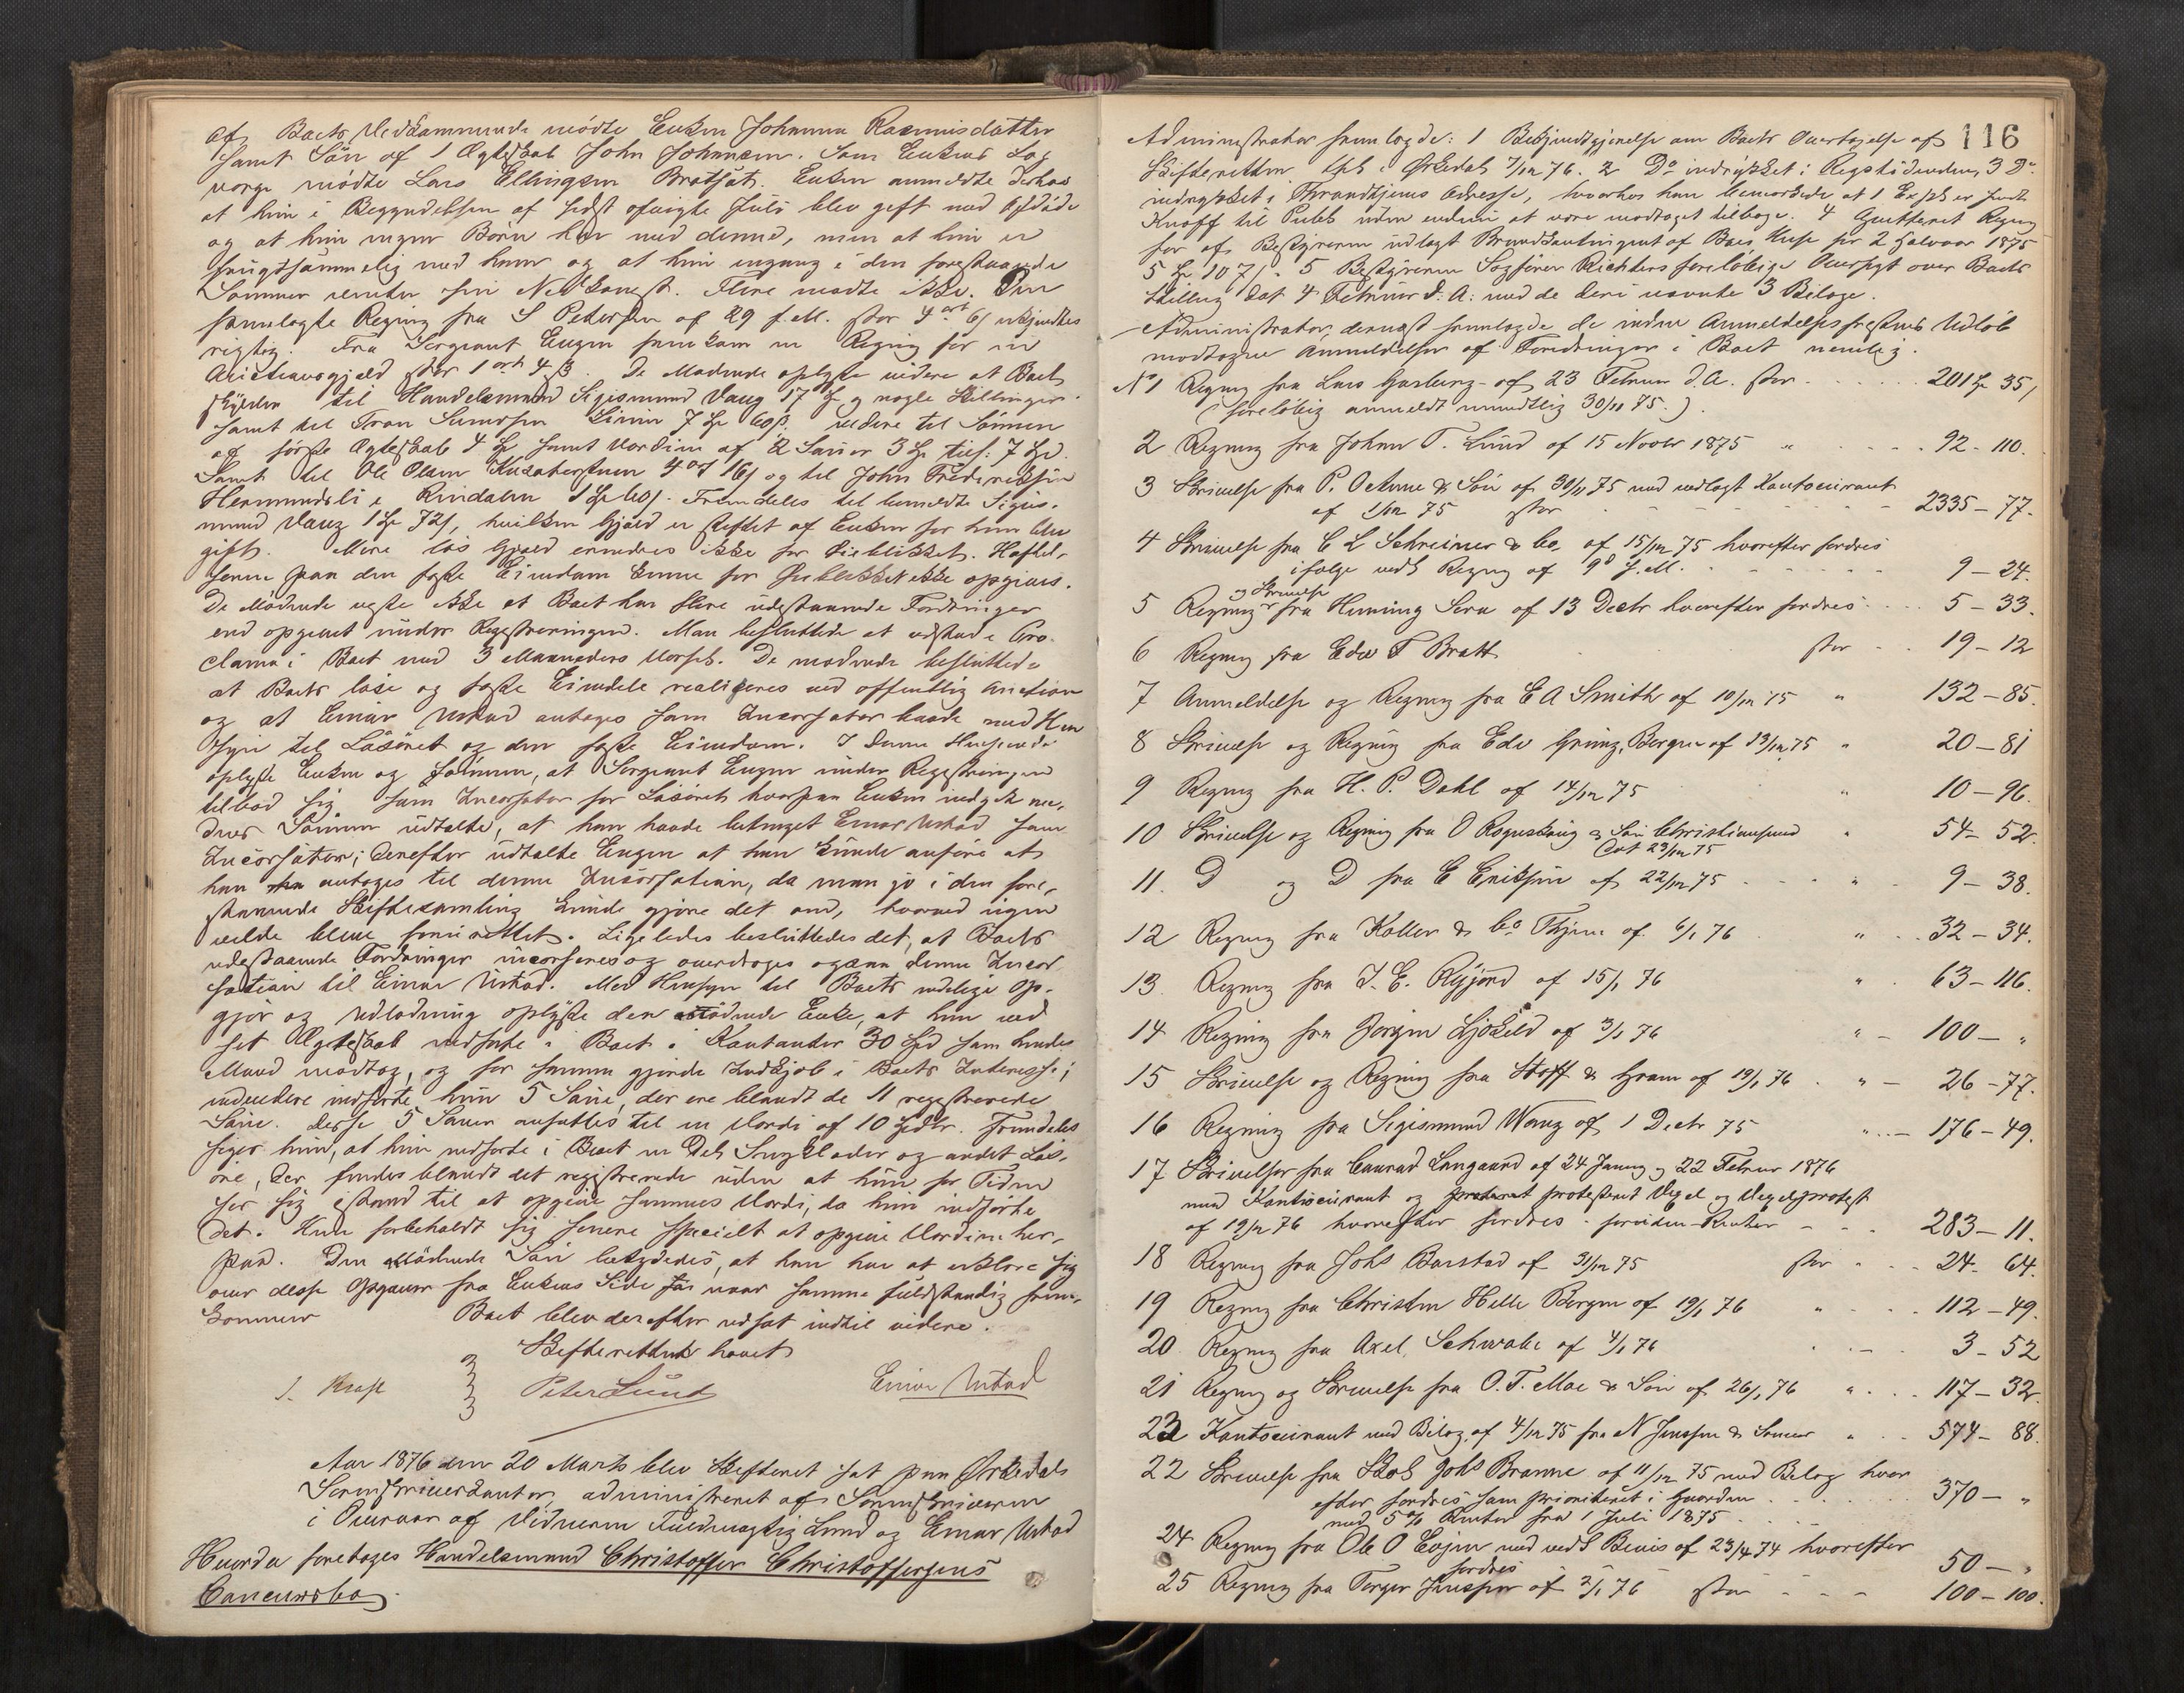 af Boets Vedkommende mödte Enken Johanna Rasmusdatter
samt Sön af 1 Ægteskab John Johnsen. Som Enkens Lag
værge mödte Lars Ellingsen Bratset. Enken anmeldte derhos
at hun i Begyndelsen af sidst afvigte Juli blev gift med Afdöde
og at hun ingen Börn har med denne, men at hun er
frugtsommelig med ham og at hun engang i den forestaaende
Sommer venter sin Nedkomst. Flere mödte ikke. Den
fremlagte Regning fra S Petersen af 29 f. M. stor 4 ort 6 s erkjendtes
rigtig. Fra Sergeant Engen fremkom en Regning for en
Auctionsgjæld stor 1 ort 4 s. De Mödende oplyste videre at Boet
skylder til Handelsmand Sigismund Vang 17 Spd og nogle Skillinger
samt til Fron Simonsen 7 Spd 60 s. videre til Sönnen
af förste Ægteskab 4 Spd samt Værdien af 2 Sauer 3 Spd tils: 7 Spd.
Samt til Ole Olsen 4 ort 16 s og til John Frederiksen
Hermundsli i Rindalen 1 Spd 60 s. Fremdeles til bemeldte Sigis-
mund Vang 1 Spd 72 s, hvilken Gjæld er stiftet af Enken för hun blev
gift. Mere lös Gjæld erindres ikke for Öieblikket. Heftel-
serne paa den faste Eiendom kunne for Öieblikket ikke opgives.
De Mödende vidste ikke at Boet har flere udestaaende Fordringer
end opgivet under Registreringen. Man besluttede at udstede Pro-
clama i Boet med 3 Maaneders Varsel. De mödende besluttede
at Boets löse og faste Eiendele realiseres ved offentlig Auction
og at Einar Ustad antages som Incassator baade med Hen
syn til Lösöret og den faste Eiendom. I denne Henseende
oplyste Enken og Sönnen, at Sergeant Engen under Registreringen
tilböd sig som Incassator for Lösöret hvorpaa Enken indgik me-
dens Sönnen udtalte, at han havde betinget Einar Ustad som
Incassator; derefter udtalte Engen at han kunde anföre at
han antages til denne Incassation, da man jo i den fore-
staaende Skiftesamling kunde gjöre det om, hvorved ingen
vilde blive forurettet. Ligeledes besluttedes det, at Boets
udestaaende Fordringer incasseres og overdroges ogsaa denne Incas
sation til Einar Ustad. Med Hensyn til Boets endelige Op-
gjör og Udlodning oplyste den mödende Enke, at hun ved
sit Ægteskab indförte i Boet i Kontanter 30 Spd som hendes
Mand modtog, og for samme gjorde Indkjöb i Boets Interesse;
endvidere indförte hun 5 Sauer, der ere blandt de 11 registrerede
Sauer. Disse 5 Sauer ansattes til en Værdi af 10 Spdlr. Fremdeles
siger hun, at hun indförte i Boet en Del Sengklæder og andet Lös-
öre, der findes blandt det registrerede uden at hun for Tiden
ser sig istand til at opgive sammes Værdi, da hun indförte
det. Hun forbeholdt sig senere specielt at opgive Værdien her-
paa. Den mödende Sön betydedes, at han har at erklære sig
over disse Opgaver fra Enkens Side saa snart samme fuldstændig frem-
kommer Boet blev derefter udsat indtil videre.
Skifteretten hævet
J. Krafl Peter Lund Einar Ustad
Aar 1876 den 20 Marts blev Skifteret sat paa Örkedals
Sorenskriverkontor, administreret af Sorenskriveren
i Overvær af Vidnerne Fuldmægtig Lund og Einar Ustad
Hvorda foretoges Handelsmand Christoffer Christoffersens
Concursbo.
116
Administrator fremlagde: 1 Bekjendtgjörelse om Boets Overtagelse af
Skifteretten læst i Örkedal 7/12 76. 2 Do indrykket i Rigstidenden, 3 Do
indrykket i Throndhjems Adresse, hvorhos han bemærkede at 1 Expl er sendt
Knoff til Publ. uden endnu at være modtaget tilbage. 4 Qvitteret Regning
for af Bestyreren udlagt Brandkontingent af Boets Huse for 2 Halvaar 1875
5 Spd 107 s. 5 Bestyreren Sagförer Richters foreløbige Oversigt over Boets
Stilling dat 4 Februar d: A: med de deri nævnte 3 Bilage.
Administrator dernæst fremlagde de inden Anmeldelsesfristens Udlöb
modtagne Anmeldelser af Fordringer i Boet nemlig.
No 1 Regning fra Lars Garberg af 23 Februar d. A. stor 201 Spd 35 s
(foreløbig anmeldt mundtlig 30/11 75.)
2 Regning fra Johan T. Lund af 15 Novbr 1875 " 92 - 110.
3 Skrivelse fra P. O Aune & Sön af 30/11 75 med vedlagt Kontocourant
af 1/12 75 stor 2335 - 77.
4 Skrivelse fra C L Schreiner & Co. af 15/12 75 hvorefter fordres
ifölge vedl Regning af 9d f. M. 9 - 24.
5 Regning og Skrivelse fra Henning Sera af 13 Decbr hvorefter fordres 5 - 33.
6 Regning fra Edv T Bratt stor 19 - 12
7 Anmeldelse og Regning fra E A Smith af 10/12 75 " 132 - 85.
8 Skrivelse og Regning fra Edv Gring, Bergen af 13/12 75 " 20 - 81
9 Regning fra H. P. Dahl af 14/12 75 " 10 - 96.
10 Skrivelse og Regning fra O Rognskoug & Sön Christiansund " 54 - 52.
dat 23/12 75
11. D og D fra C Eriksen af 22/12 75 " 9 - 38.
12 Regning fra Koller & Co Thjem af 6/1 76 " 32 - 34.
13 Regning fra J. E. Ryjord af 15/1 76 " 63 - 116.
14 Regning fra Jörgen Ljökild af 3/1 76 " 100 - "
15 Skrivelse og Regning fra Hoff & Gram af 19/1 76 " 26 - 77.
16 Regning fra Sigismund Wang af 1 Decbr 75 " 176 - 49.
17 Skrivelser fra Conrad Langaard af 24 Januar og 22 Februar 1876
med Kontocourant og protesteret Vexel og Vexelprotest
af 19/2 76 hvorefter fordres foruden Renter 283 - 11.
18 Regning fra Johs Barstad af 31/12 75 stor 24 - 64.
19 Regning fra Christen Helle Bergen af 19/1 76 " 112 - 49.
20 Regning fra Axel Schwabe af 4/1 76 3 - 52
21 Regning og Skrivelse fra O. T. Moe & Sön af 26/1 76 " 117 - 32.
23 Kontocourant med Bilag af 4/12 75 fra N Jenssen & Sönner " 574 - 88.
22 Skrivelse fra Skol Johs Branne af 11/12 75 med Bilag hvor
efter fordres som prioriteret i Gaarden 370 - "
med 5% Renter fra 1 Juli 1875
24 Regning fra Ole O Evjen med vedl Bevis af 23/4 74 hvorefter
fordres 50 - "
25 Regning fra Torger Jenssen af 3/1 76 stor 100 - 100.